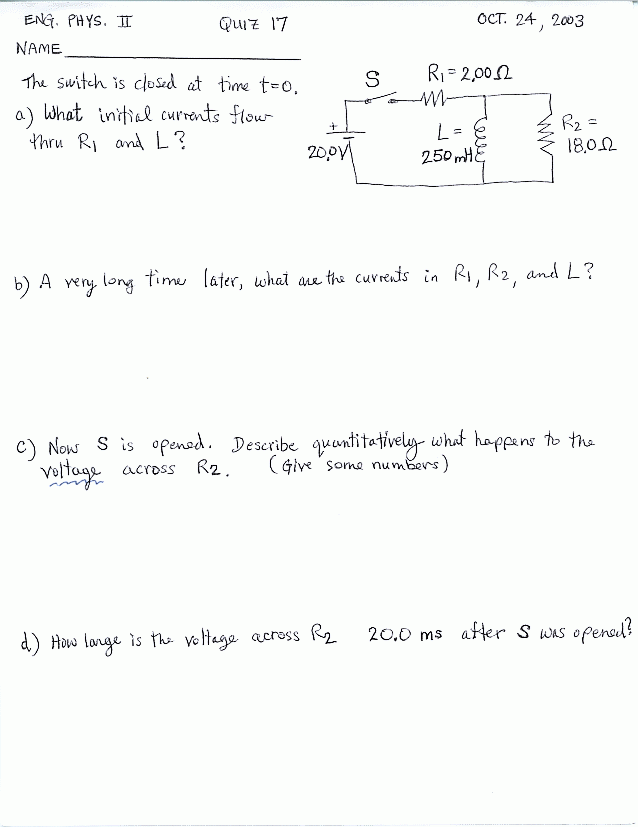 ENG. PHYS. II QUIZ 17 OCT. 24, 2003
NAME
The switch is closed at time t=0.
a) What initial currents flow
thru R1 and L?
S R1=2.00Ω
+
20.0V
L=
250mH
R2=
18.0Ω
b) A very long time later, what are the currents in R1, R2, and L?
c) Now S is opened. Describe quantitatively what happens to the
voltage across R2. (Give some numbers)
d) How large is the voltage across R2 20.0 ms after S was opened?